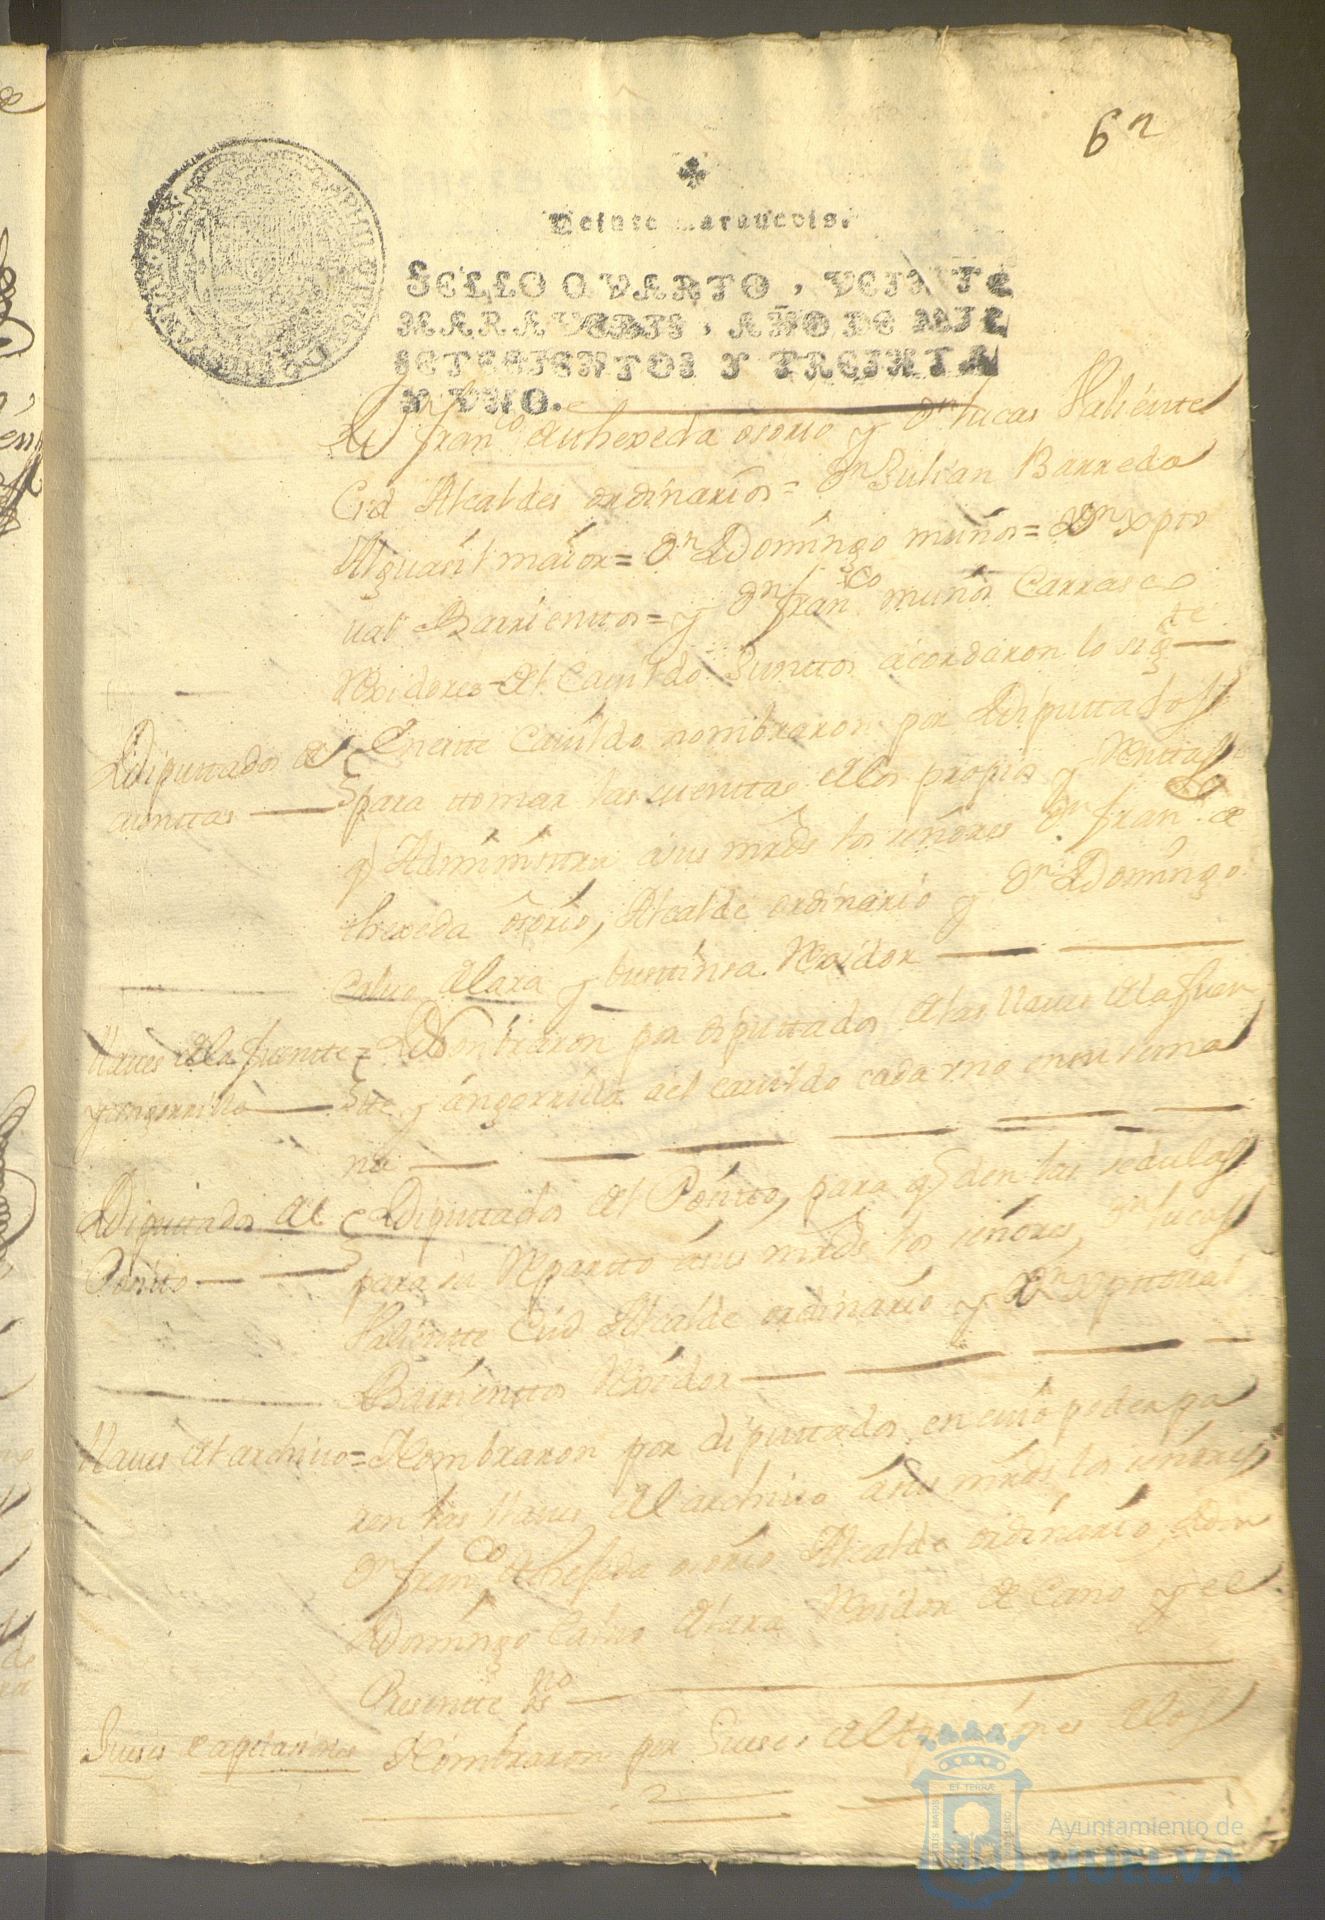 62
Veinte marauedis.
SELLO QVARTO, VEINTE
MARAVEDIS, AÑO DE MIL
SETECIENTOS Y TREINTA
Y VNO.
Dn franco de thexeda osorio y Dn lucas Valiente
Cid Alcaldes ordinarios = Dn Julian Barreda
Alguasil maior = Dn Domingo muños = Dn Xpto
ual Barrienttos = y Dn franco muños Carrasco
Rexidores del Cauildo Junttos acordaron lo sigte
Diputtados de
cuenttas
En estte cauildo nombraron por Diputtados
para ttomar las cuenttas de los propios y Renttas
q Administtra a sus mrds los señores Dn franco de
thexeda osorio, Alcalde ordinario y Dn Domingo
Caluo de lara y Rexidor
llaues de la fuentte =
y angorrilla
Nombraron por diputtados de las llaues de la fuen
tte y angorrilla del cauildo cada vno en su sema
na
Diputtados del
Positto
Diputtados del Positto, para q den las sedulas
para su Repartto a sus mrds los señores, Dn lucas
Valientte Cid Alcalde ordinario y Dn Xpttoual
Barrienttos Rexidor
llaues del archiuo =
Nombraron por diputtados en cuio poder pa
ren las llaues del archiuo a sus mrds los señores
Dn franco de thexeda osorio Alcalde ordinario, Don
Domingo Caluo de lara Rexidor de Cano y el
Presentte no
Jueses
Nombraron por Jueses de los
ET TERRÆ
Ayuntamiento de
HUELVA